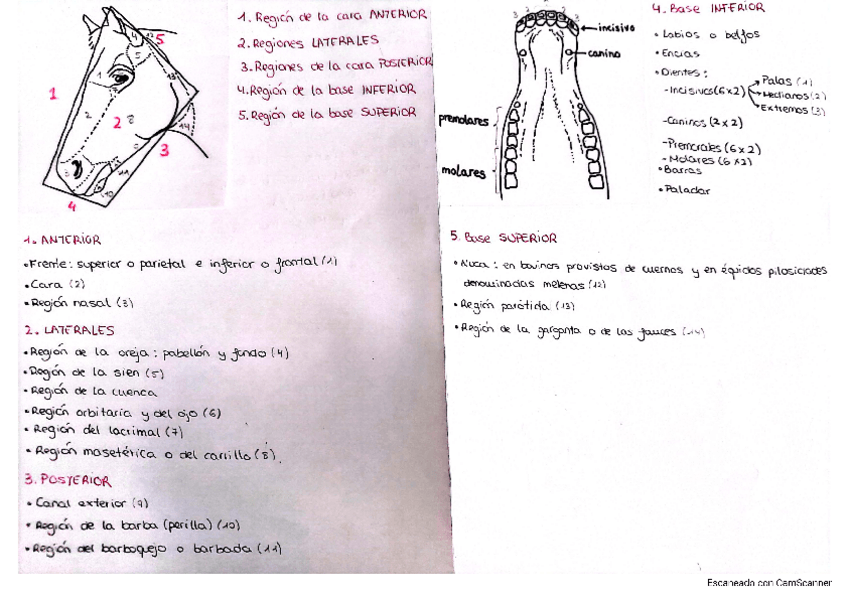 1. Región de la cara ANTERIOR
2. Regiones LATERALES
3. Regiones de la cara POSTERIOR
4. Región de la base INFERIOR
5. Región de la base SUPERIOR
1
2
3
4
5
1. ANTERIOR
• Frente: superior o parietal e inferior o frontal (1)
• Cara (2)
• Región nasal (3)
2. LATERALES
• Región de la oreja: pabellón y fondo (4)
• Región de la sien (5)
• Región de la cuenca
• Región orbitaria y del ojo (6)
• Región del lacrimal (7)
• Región masetérica o del carrillo (8).
3. POSTERIOR
• Canal exterior (9)
• Región de la barba (perilla) (10)
• Región del barboquejo o barbada (11)
3 2 1 1 2 3
incisivo
canino
premolares
molares
4. Base INFERIOR
• Labios o belfos
• Encias
• Dientes:
- Incisivos (6x2)
Palas (1)
Medianos (2)
Extremos (3)
- Caninos (2x2)
- Premorales (6x2)
- Molares (6x2)
• Barras
• Paladar
5. Base SUPERIOR
• Nuca: en bovinos provistos de cuernos y en équidos pilosidades
denominadas melenas (12)
• Región parótida (13)
• Región de la garganta o de las fauces (14)
Escaneado con CamScanner